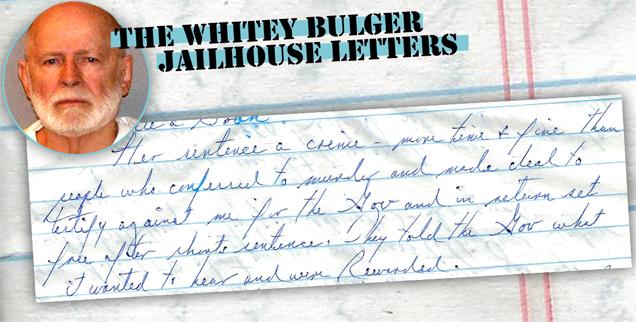 THE WHITEY BULGER
JAILHOUSE LETTERS
a
Her sentence a crime - more time & fine than
people who confessed to murder and made deal to
testify against me for the Gov and in return set
free after short sentence. They told the Gov what
it wanted to hear and were Rewarded.